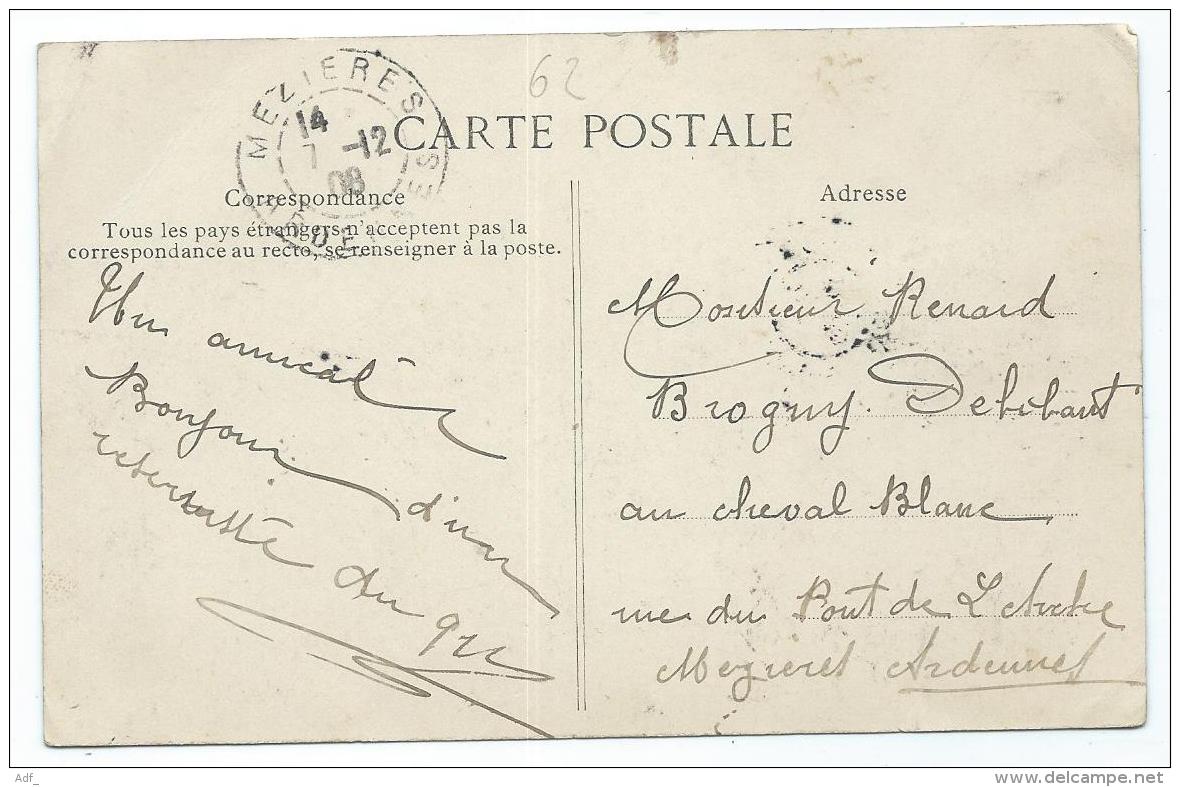 62
MEZIERES
14
7 -12
08
CARTE POSTALE
Correspondance
Tous les pays étrangers n'acceptent pas la
correspondance au recto, se renseigner à la poste.
Adresse
amicale
Bonjour d'un
du
Monsieur Renard
Brogny. Debitant
au cheval Blanc
rue du Pont de
Mezieres Ardennes
Adf_
delcampe.net